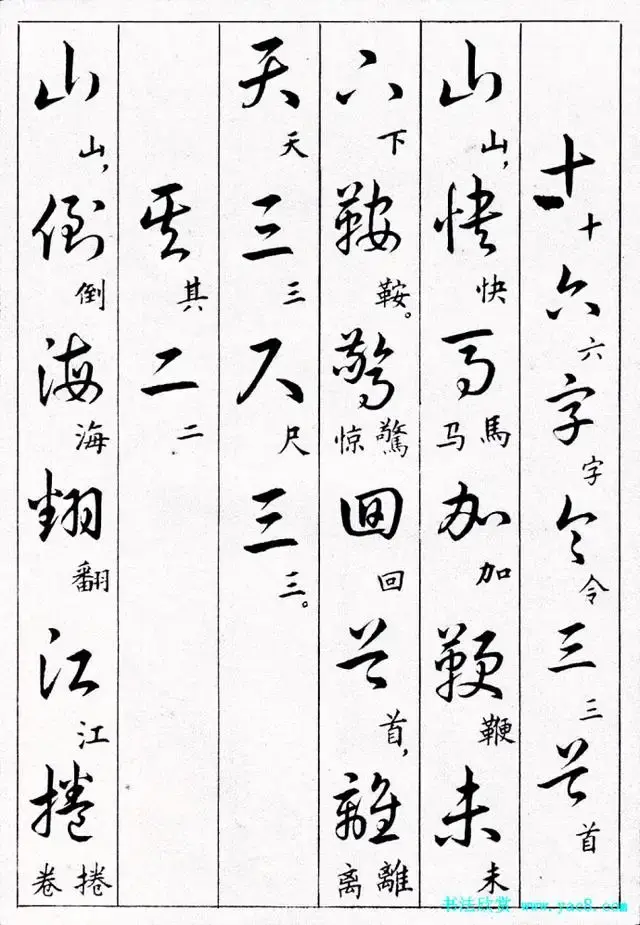 十六字令三首
十六字令三首
山快馬加鞭未
山，快馬马加鞭未
下鞍驚回首離
下鞍。驚惊回首，離离
天三尺三
天三尺三。
其二
其二
山倒海翻江捲
山，倒海翻江捲卷
书法欣赏 www.yac8.com